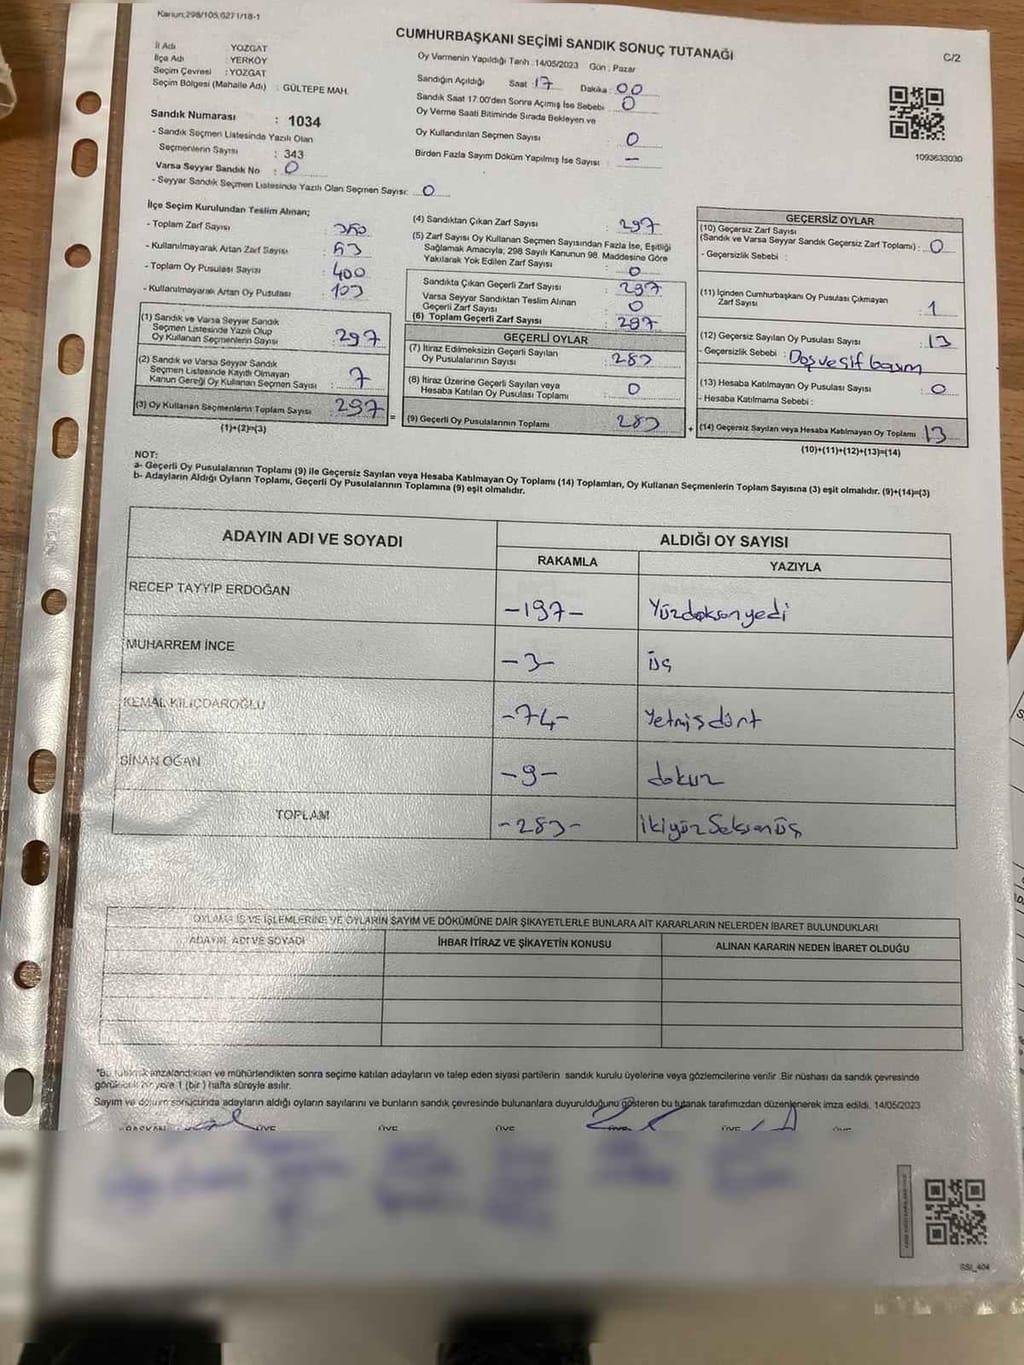 Kanun;298/105,6271/18-1
CUMHURBAŞKANI SEÇİMİ SANDIK SONUÇ TUTANAĞI
C/2
İl Adı : YOZGAT
İlçe Adı : YERKÖY
Seçim Çevresi : YOZGAT
Seçim Bölgesi (Mahalle Adı) : GÜLTEPE MAH.
Sandık Numarası : 1034
- Sandık Seçmen Listesinde Yazılı Olan
Seçmenlerin Sayısı : 343
Varsa Seyyar Sandık No : 0
- Seyyar Sandık Seçmen Listesinde Yazılı Olan Seçmen Sayısı: 0
Oy Vermenin Yapıldığı Tarih :14/05/2023 Gün : Pazar
Sandığın Açıldığı Saat 17 Dakika : 00
Sandık Saat 17.00'den Sonra Açımış İse Sebebi : 0
Oy Verme Saati Bitiminde Sırada Bekleyen ve
Oy Kullandırılan Seçmen Sayısı 0
Birden Fazla Sayım Döküm Yapılmış İse Sayısı : —
1093633030
İlçe Seçim Kurulundan Teslim Alınan;
- Toplam Zarf Sayısı : 350
- Kullanılmayarak Artan Zarf Sayısı : 53
- Toplam Oy Pusulası Sayısı : 400
- Kullanılmayarak Artan Oy Pusulası : 103
(1) Sandık ve Varsa Seyyar Sandık
Seçmen Listesinde Yazılı Olup
Oy Kullanan Seçmenlerin Sayısı : 297
(2) Sandık ve Varsa Seyyar Sandık
Seçmen Listesinde Kayıtlı Olmayan
Kanun Gereği Oy Kullanan Seçmen Sayısı : 7
(3) Oy Kullanan Seçmenlerin Toplam Sayısı : 297
(1)+(2)=(3)
(4) Sandıktan Çıkan Zarf Sayısı : 297
(5) Zarf Sayısı Oy Kullanan Seçmen Sayısından Fazla İse, Eşitliği
Sağlamak Amacıyla, 298 Sayılı Kanunun 98. Maddesine Göre
Yakılarak Yok Edilen Zarf Sayısı : 0
Sandıkta Çıkan Geçerli Zarf Sayısı : 297
Varsa Seyyar Sandıktan Teslim Alınan
Geçerli Zarf Sayısı : 0
(6) Toplam Geçerli Zarf Sayısı : 297
GEÇERLİ OYLAR
(7) İtiraz Edilmeksizin Geçerli Sayılan
Oy Pusulalarının Sayısı : 283
(8) İtiraz Üzerine Geçerli Sayılan veya
Hesaba Katılan Oy Pusulası Toplamı : 0
(9) Geçerli Oy Pusulalarının Toplamı : 283
GEÇERSİZ OYLAR
(10) Geçersiz Zarf Sayısı
(Sandık ve Varsa Seyyar Sandık Geçersiz Zarf Toplamı) : 0
- Geçersizlik Sebebi :
(11) İçinden Cumhurbaşkanı Oy Pusulası Çıkmayan
Zarf Sayısı : 1
(12) Geçersiz Sayılan Oy Pusulası Sayısı : 13
- Geçersizlik Sebebi : Boş ve Çift basım
(13) Hesaba Katılmayan Oy Pusulası Sayısı : 0
- Hesaba Katılmama Sebebi :
(14) Geçersiz Sayılan veya Hesaba Katılmayan Oy Toplamı : 13
(10)+(11)+(12)+(13)=(14)
NOT:
a- Geçerli Oy Pusulalarının Toplamı (9) ile Geçersiz Sayılan veya Hesaba Katılmayan Oy Toplamı (14) Toplamları, Oy Kullanan Seçmenlerin Toplam Sayısına (3) eşit olmalıdır. (9)+(14)=(3)
b- Adayların Aldığı Oyların Toplamı, Geçerli Oy Pusulalarının Toplamına (9) eşit olmalıdır.
ADAYIN ADI VE SOYADI ALDIĞI OY SAYISI
RAKAMLA YAZIYLA
RECEP TAYYİP ERDOĞAN -197- Yüzdoksanyedi
MUHARREM İNCE -3- üç
KEMAL KILIÇDAROĞLU -74- Yetmişdört
SİNAN OĞAN -9- dokuz
TOPLAM -283- ikiyüzseksenüç
OYLAMA İŞ VE İŞLEMLERİNE VE OYLARIN SAYIM VE DÖKÜMÜNE DAİR ŞİKAYETLERLE BUNLARA AİT KARARLARIN NELERDEN İBARET BULUNDUKLARI
ADAYIN ADI VE SOYADI İHBAR İTİRAZ VE ŞİKAYETİN KONUSU ALINAN KARARIN NEDEN İBARET OLDUĞU
*Bu tutanak imzalandıktan ve mühürlendikten sonra seçime katılan adayların ve talep eden siyasi partilerin sandık kurulu üyelerine veya gözlemcilerine verilir .Bir nüshası da sandık çevresinde
görülebilir bir yere 1 (bir ) hafta süreyle asılır.
Sayım ve döküm sonucunda adayların aldığı oyların sayılarını ve bunların sandık çevresinde bulunanlara duyurulduğunu gösteren bu tutanak tarafımızdan düzenlenerek imza edildi. 14/05/2023
BAŞKAN ÜYE ÜYE ÜYE ÜYE ÜYE ÜYE
SSI_404